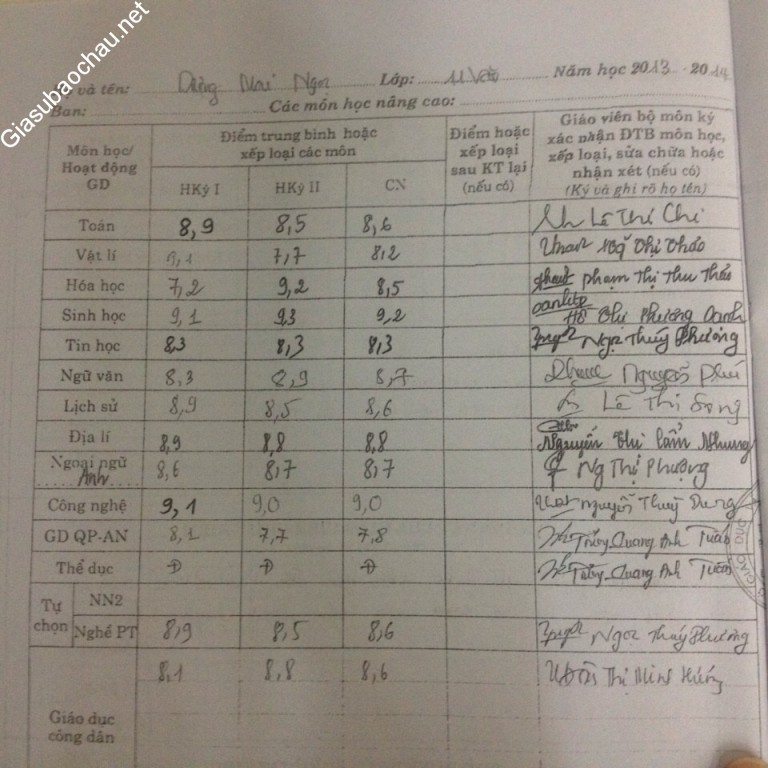 Giasubaochau.net
và tên: Mai Ngọc Lớp: 11 Văn Năm học 2013 - 2014
Ban: Các môn học nâng cao:
Môn học/ Hoạt động GD
Điểm trung bình hoặc xếp loại các môn
HKỳ I HKỳ II CN
Điểm hoặc xếp loại sau KT lại (nếu có)
Giáo viên bộ môn ký xác nhận ĐTB môn học, xếp loại, sửa chữa hoặc nhận xét (nếu có)
(Ký và ghi rõ họ tên)
Toán 8,9 8,5 8,6 Lê Thị Chi
Vật lí 9,1 7,7 8,2 Thị Thảo
Hóa học 7,2 9,2 8,5 phạm Thị Thu Thảo
Sinh học 9,1 9,3 9,2 Hồ Thị Phương Oanh
Tin học 8,3 8,3 8,3 Ngọ Thuý Phương
Ngữ văn 8,3 8,9 8,7 Nguyễn
Lịch sử 8,9 8,5 8,6 Lê Thị Song
Địa lí 8,9 8,8 8,8 Nguyễn Thị Cẩm Nhung
Ngoại ngữ Anh 8,6 8,7 8,7 Ng Thị Phượng
Công nghệ 9,1 9,0 9,0 Nguyễn Thuỳ Dung
GD QP-AN 8,1 7,7 7,8 Quang Anh Tuấn
Thể dục Đ Đ Đ Quang Anh Tuấn
Tự chọn
NN2
Nghề PT 8,9 8,5 8,6 Ngọ Thuý Phương
Giáo dục công dân 8,1 8,8 8,6 Thị Minh